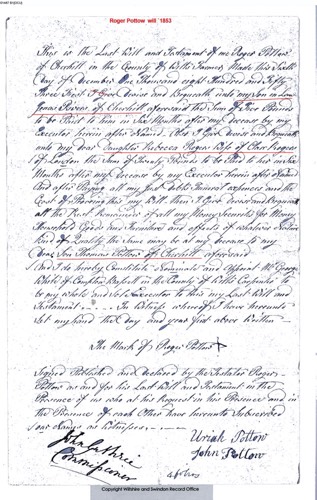 Roger Pottow will 1853
This is the Last Will and Testament of me Roger Pottow
of Cherhill in the County of Wilts Farmer Made this Sixth
Day of December One Thousand eight Hundred and Fifty
Three First I Give Devise and Bequeath unto my Son in Law
of Cherhill aforesaid the Sum of Five Pounds
to be Paid to him in Six Months after my decease by my
Executor herein after Named. Also I Give Devise and Bequeath
unto my dear Daughter Rebecca Rogers Wife of Rogers
of London the Sum of Twenty Pounds to be Paid to her in Six
Months after my decease by my Executor herein after Named
And after Paying all my Just Debts Funeral expences and the
Cost of Proving this my Will then I Give Devise and Bequeath
all the Rest Remainder of all my Money Securities for Money
Household Goods and Furniture and effects of whatever Nature
Kind of Quality the Same may be at my decease to my
Dear Son Thomas Pottow of Cherhill aforesaid
And I do hereby Constitute Nominate and Appoint Mr George
White of Compton Bassett in the County of Wilts Carpenter to
be my whole and Sole Executor to this my Last Will and
Testament In Witness whereof I have hereunto
Set my hand the Day and year First above Written
The Mark of Roger Pottow X
Signed Published and declared by the Testator Roger
Pottow as and for his Last Will and Testament in the
Presence of us who at his Request in his Presence and in
the Presence of each Other have hereunto Subscribed
our Names as Witnesses
John Guthrie
Commissioner
Uriah Pottow
John Pottow
Copyright Wiltshire and Swindon Record Office